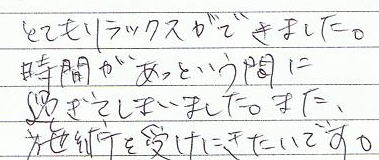 とてもリラックスができました。
時間があっという間に
過ぎてしまいました。また、
施術を受けにきたいです。